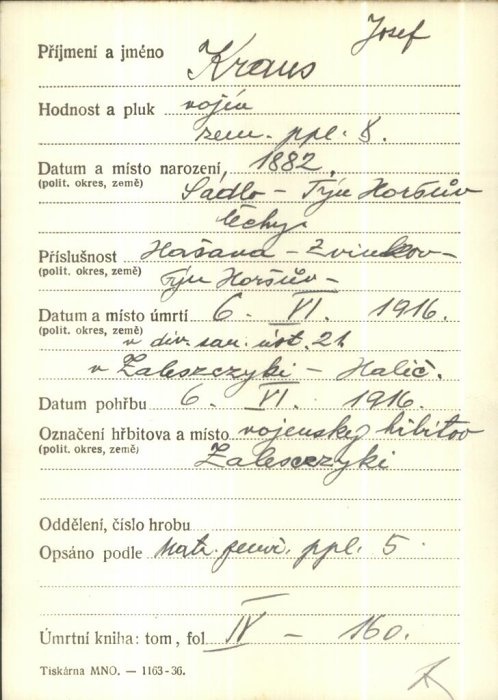 Josef
Příjmení a jméno Kraus
Hodnost a pluk vojín
zem. ppl. 8.
Datum a místo narození 1882,
(polit. okres, země) Sádlo - Týn Horšův
Čechy
Příslušnost Hašava - Zvinkov -
(polit. okres, země) Týn Horšův -
Datum a místo úmrtí 6. VI. 1916.
(polit. okres, země) v div. san. úst. 21.
v Zaleszczyki - Halič.
Datum pohřbu 6. VI. 1916.
Označení hřbitova a místo vojenský hřbitov
(polit. okres, země) Zalesczyki
Oddělení, číslo hrobu
Opsáno podle Matr. ppl. 5.
Úmrtní kniha: tom, fol IV - 160.
Tiskárna MNO. — 1163-36.